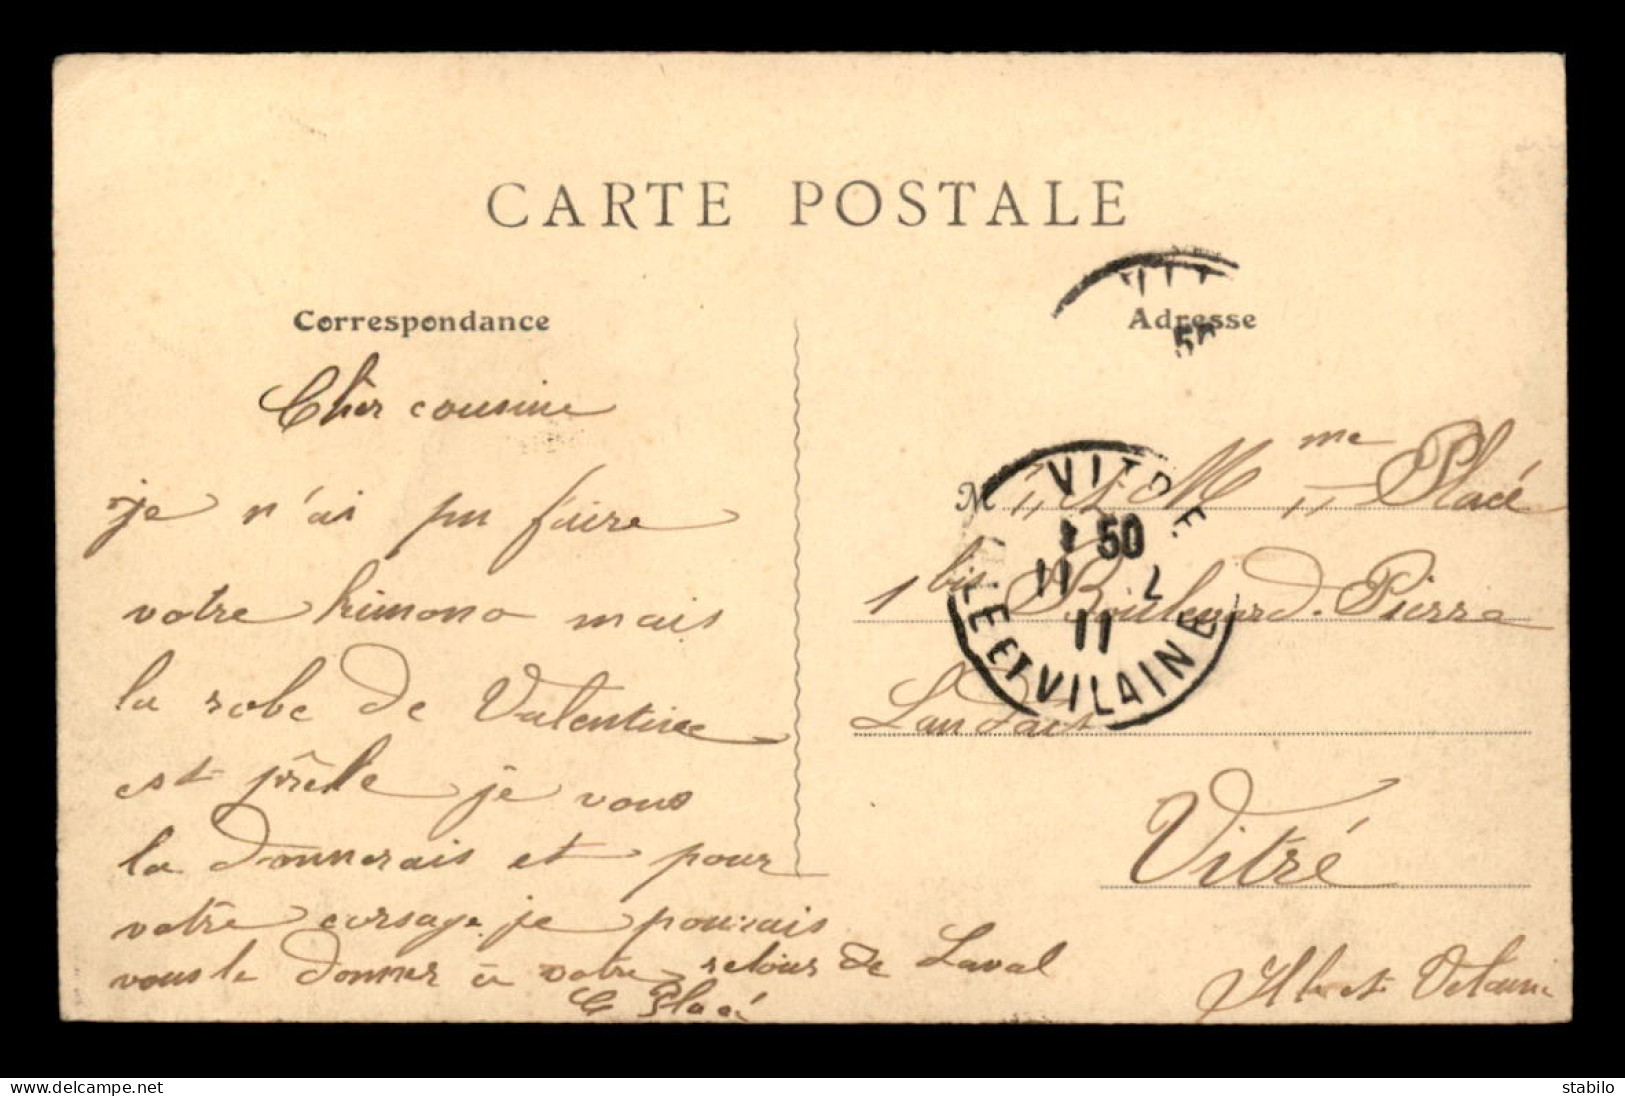 CARTE POSTALE
Correspondance
Adresse
Cher cousine
je n'ai pu faire
votre kimono mais
la robe de Valentine
est prête je vous
la donnerais et pour
votre corsage je pourrais
vous le donner à votre retour de Laval
C Placé
M
Mme Placé
1 bis Boulevard Pierre
Landais
Vitré
Ille et Vilaine
VIT
50
VITRE
1 50
11 2
11
ILLE ET VILAINE
delcampe.net
stabilo